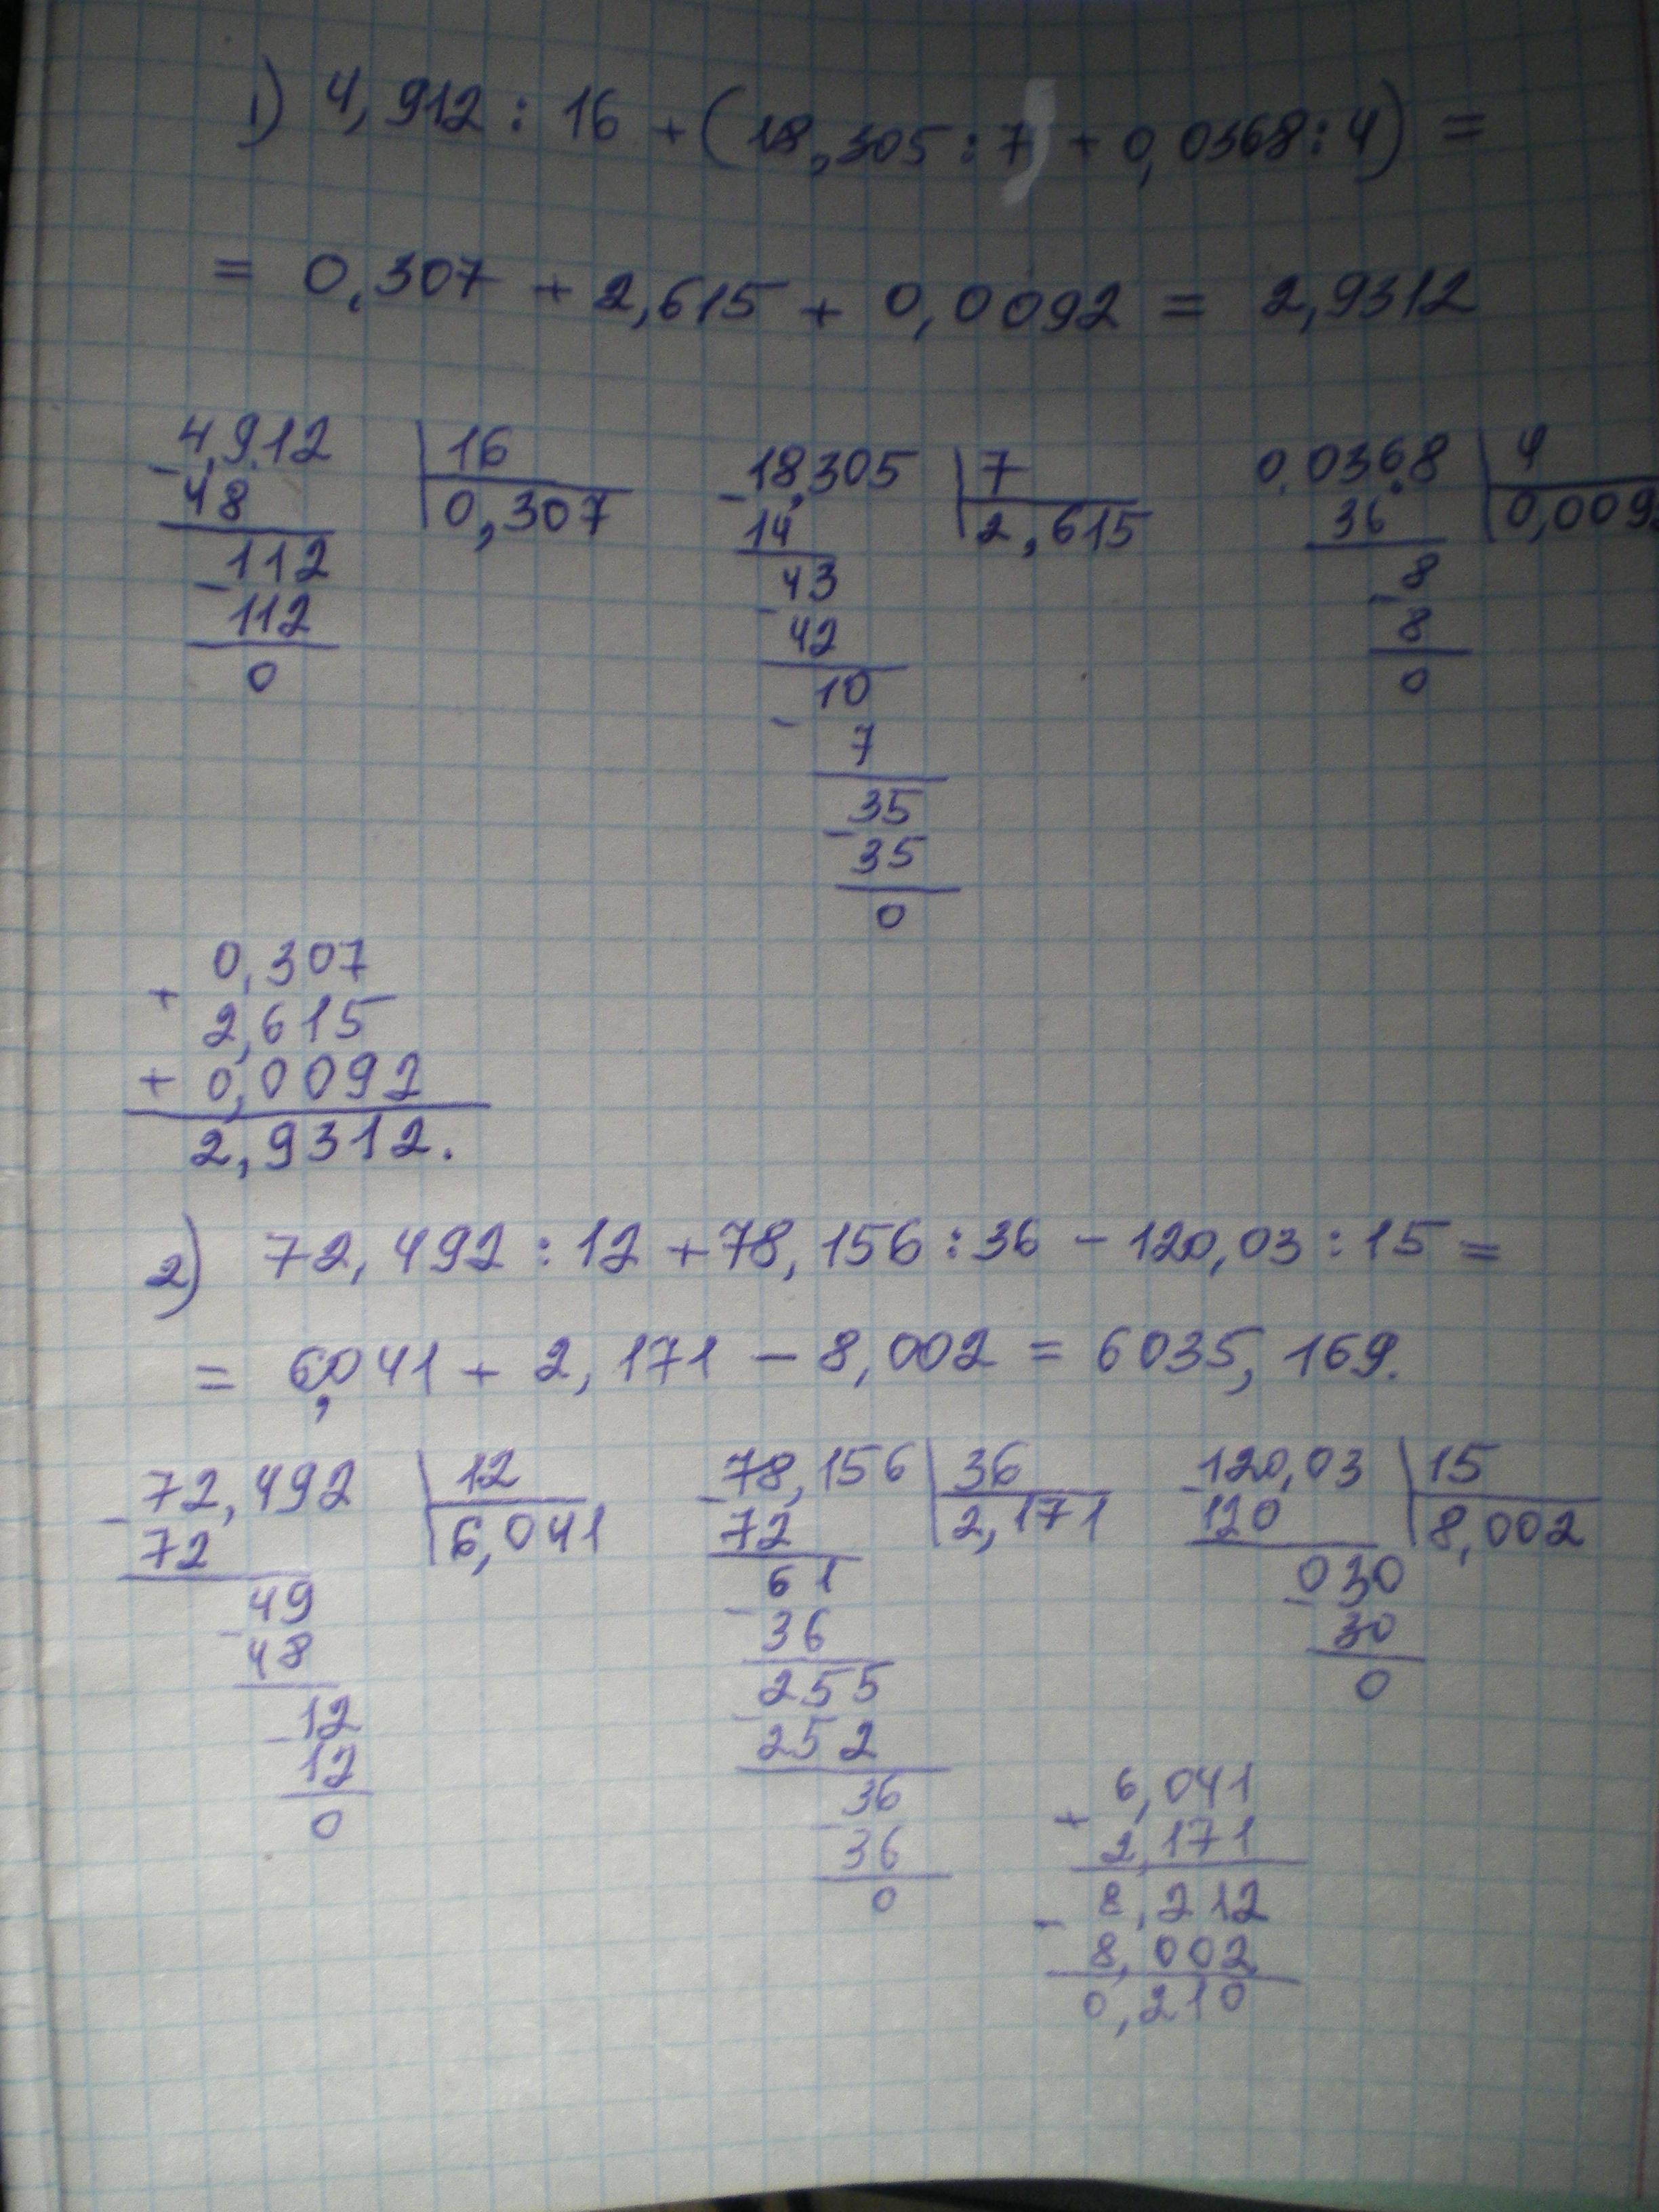 1) 4,912 : 16 + (18,305 : 7) + 0,0368 : 4) =
= 0,307 + 2,615 + 0,0092 = 2,9312
4,912 | 16
- 48 | 0,307
112
- 112
0
18,305 | 7
- 14 | 2,615
43
- 42
10
- 7
35
- 35
0
0,0368 | 4
36 | 0,009
8
- 8
0
0,307
+ 2,615
+ 0,0092
2,9312.
2) 72,492 : 12 + 78,156 : 36 - 120,03 : 15 =
= 6,041 + 2,171 - 8,002 = 6035,169.
72,492 | 12
- 72 | 6,041
49
- 48
12
- 12
0
78,156 | 36
- 72 | 2,171
61
- 36
255
- 252
36
- 36
0
120,03 | 15
- 120 | 8,002
030
- 30
0
6,041
+ 2,171
8,212
- 8,002
0,210